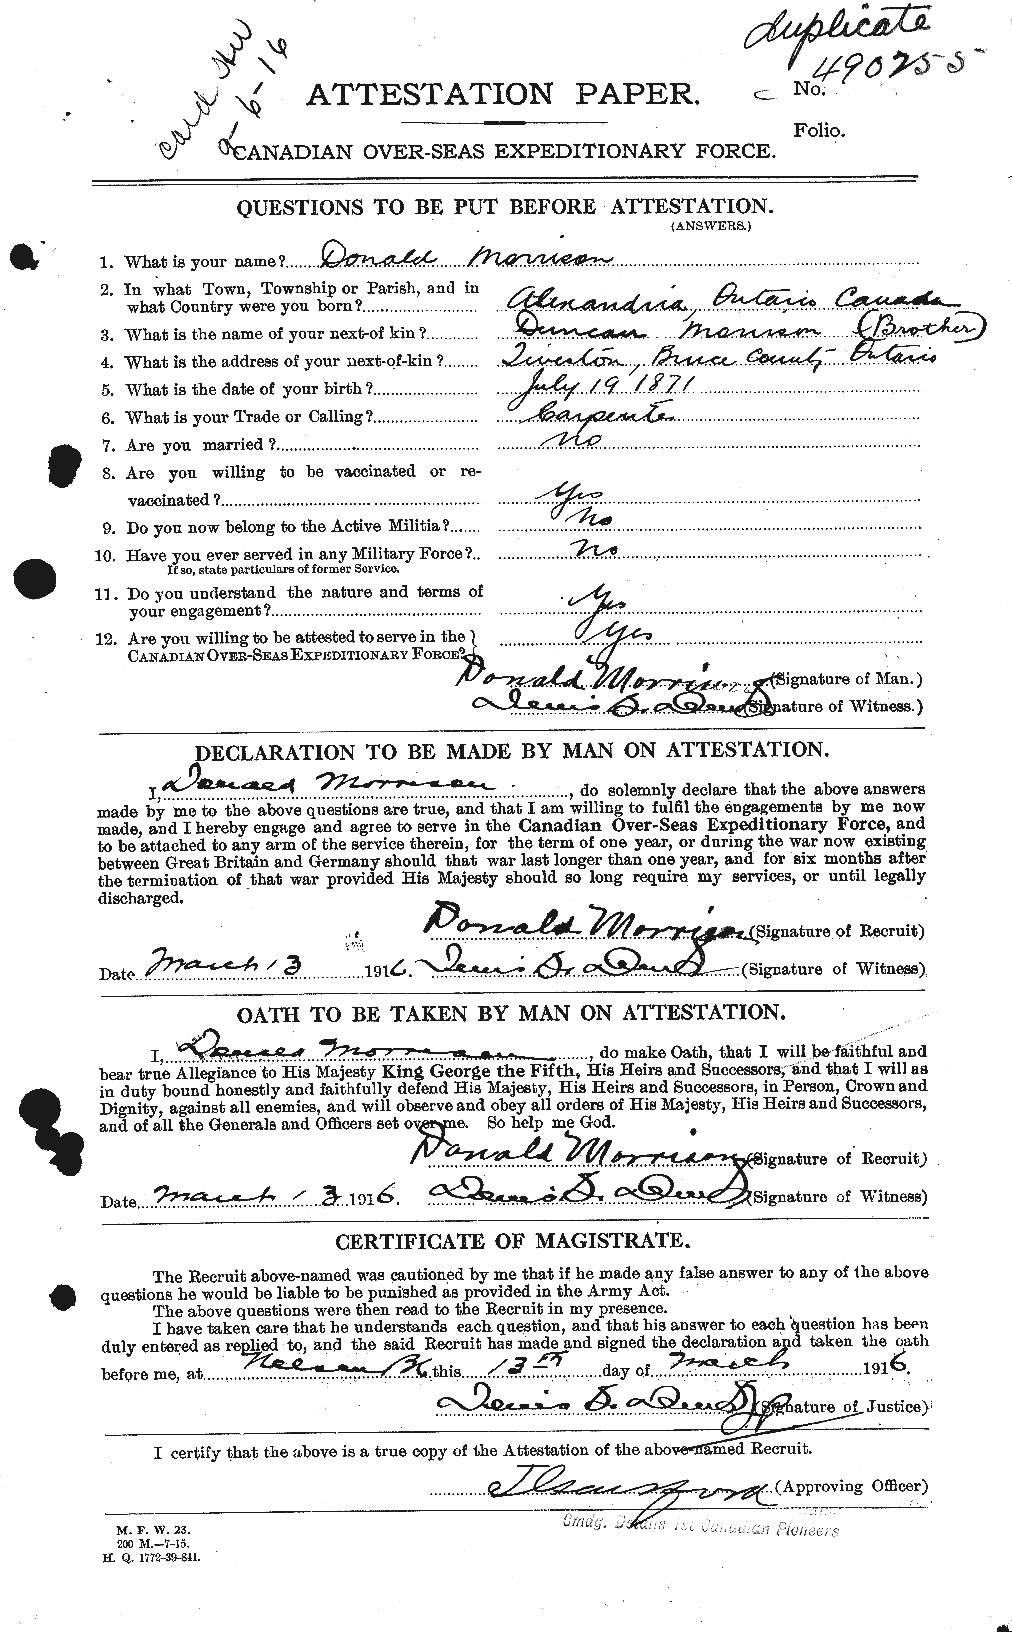 Duplicate
card
2-6-16
ATTESTATION PAPER.
No. 490255
Folio.
CANADIAN OVER-SEAS EXPEDITIONARY FORCE.
QUESTIONS TO BE PUT BEFORE ATTESTATION.
(ANSWERS.)
1. What is your name? Donald Morrison
2. In what Town, Township or Parish, and in
what Country were you born? Alexandria, Ontario Canada
3. What is the name of your next-of kin? Duncan Morrison (Brother)
4. What is the address of your next-of-kin? Tiverton, Bruce County Ontario
5. What is the date of your birth? July 19 1871
6. What is your Trade or Calling? Carpenter
7. Are you married? No
8. Are you willing to be vaccinated or re-
vaccinated? Yes
9. Do you now belong to the Active Militia? No
10. Have you ever served in any Military Force? No
If so, state particulars of former Service.
11. Do you understand the nature and terms of
your engagement? Yes
12. Are you willing to be attested to serve in the
CANADIAN OVER-SEAS EXPEDITIONARY FORCE? Yes
Donald Morrison (Signature of Man.)
(Signature of Witness.)
DECLARATION TO BE MADE BY MAN ON ATTESTATION.
I, Donald Morrison, do solemnly declare that the above answers
made by me to the above questions are true, and that I am willing to fulfil the engagements by me now
made, and I hereby engage and agree to serve in the Canadian Over-Seas Expeditionary Force, and
to be attached to any arm of the service therein, for the term of one year, or during the war now existing
between Great Britain and Germany should that war last longer than one year, and for six months after
the termination of that war provided His Majesty should so long require my services, or until legally
discharged.
Donald Morrison (Signature of Recruit)
Date March 13 1916. (Signature of Witness)
OATH TO BE TAKEN BY MAN ON ATTESTATION.
I, Donald Morrison, do make Oath, that I will be faithful and
bear true Allegiance to His Majesty King George the Fifth, His Heirs and Successors, and that I will as
in duty bound honestly and faithfully defend His Majesty, His Heirs and Successors, in Person, Crown and
Dignity, against all enemies, and will observe and obey all orders of His Majesty, His Heirs and Successors,
and of all the Generals and Officers set over me. So help me God.
Donald Morrison (Signature of Recruit)
Date March 13 1916. (Signature of Witness)
CERTIFICATE OF MAGISTRATE.
The Recruit above-named was cautioned by me that if he made any false answer to any of the above
questions he would be liable to be punished as provided in the Army Act.
The above questions were then read to the Recruit in my presence.
I have taken care that he understands each question, and that his answer to each question has been
duly entered as replied to, and the said Recruit has made and signed the declaration and taken the oath
before me, at Nelson BC this 13th day of March 1916.
JP (Signature of Justice)
I certify that the above is a true copy of the Attestation of the above-named Recruit.
(Approving Officer)
Cmdg. Details 1st Canadian Pioneers
M. F. W. 23.
200 M.—7-15.
H. Q. 1772-39-841.